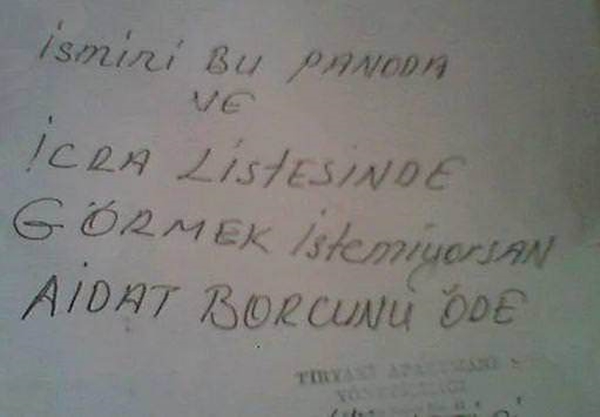 ismini BU PANODA
VE
İCRA LiSTESiNDE
GÖRMEK istemiyorSAN
AiDAT BORCUNU ÖDE
TİRYAKİ APARTMANI
YÖNETİCİLİĞİ